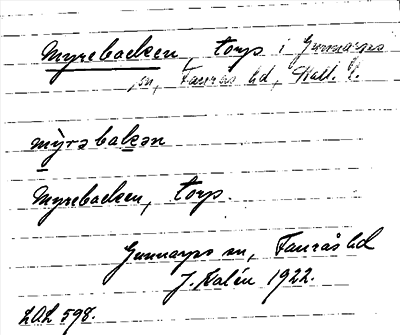 Myrebacken, torp i Gunnarps
sn, Faurås hd, Hall. l.
mỳrə bakən
Myrebacken, torp.
Gunnarps sn, Faurås hd
J. Kalén 1922.
LAL 598.